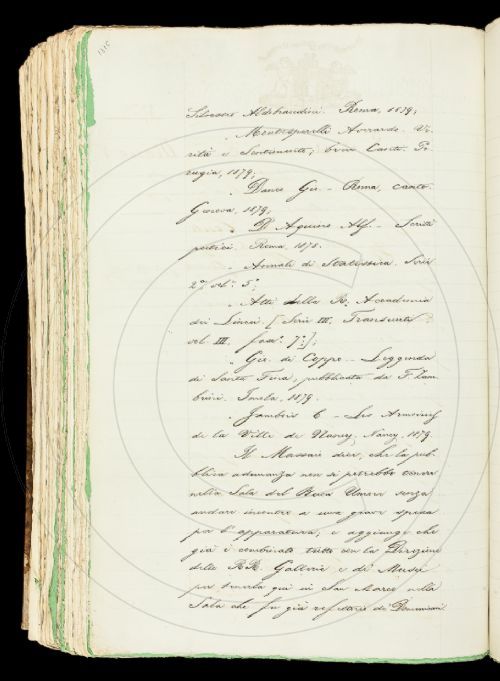 1315
Silvestro Aldobrandini. Roma, 1879;
" Montesperelli Averardo. Ve-
rità e Sentimento, brevi Canti. Pe-
rugia, 1879;
" Danco Gio. - Roma, canto.
Genova, 1879;
" D'Aquino Alf. - Scritti
poetici. Roma, 1878.
" Annali di Statistica. Serie
2a, vol. 5°;
" Atti della R. Accademia
dei Lincei. [Serie III. Transunti
vol. III. fasc. 7°];
" Gio. di Coppo - Leggenda
di Santa Fina, pubblicata da F. Zam-
brini. Imola, 1879.
" Jambois C - Les Armoiries
de la Ville de Nancy. Nancy, 1879.
Il Massai dice, che la pub-
blica adunanza non si potrebbe tenere
nella Sala del Buon Umore senza
andare incontro a una grave spesa
per l'apparatura, e aggiunge che
già è combinato tutto con la Direzione
delle RR. Gallerie e di Musei
per tenerla qui in San Marco nella
Sala che fu già refettorio de' Domenicani